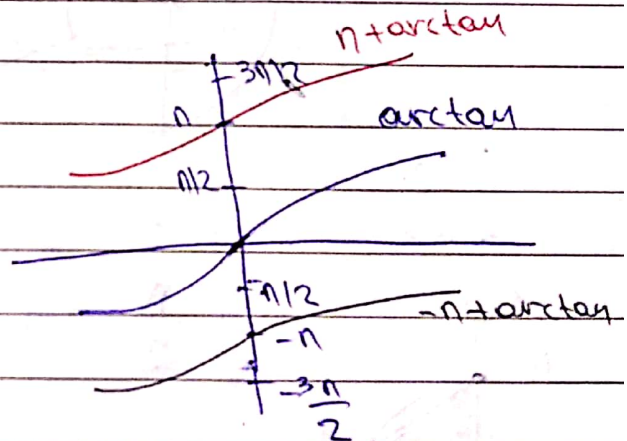 π+arctan
3π/2
π
arctan
π/2
-π/2
-π+arctan
-π
-3π/2